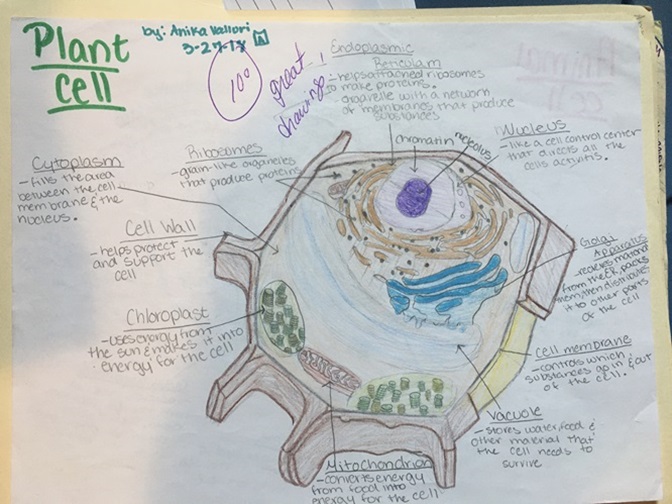 Plant
Cell
by: Anika Vallori
3-27-18
100
great !
drawing
Endoplasmic
Reticulam
- helps attached ribosomes
to make proteins.
- organelle with a network
of membranes that produce
substances
chromatin
nucleolus
Nucleus
- like a cell control center
that directs all the
cells activitis.
Ribosomes
- grain-like organelles
that produce proteins
Cytoplasm
- fills the area
between the cell
membrane & the
nucleus.
Cell Wall
- helps protect
and support the
cell
Chloroplast
- uses energy from
the sun & makes it into
energy for the cell
Golgi
Apparatus
- recieves material
from the ER, packs
them, then distributes
it to other parts
of the cell
Cell membrane
- controls which
substances go in & out
of the cell.
Vacuole
- stores water, food &
other material that
the cell needs to
survive
Mitochondrion
- converts energy
from food into
energy for the cell
Animal
cell